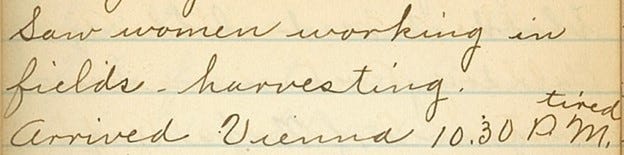 Saw women working in
fields - harvesting.
tired
Arrived Vienna 10.30 P.M.